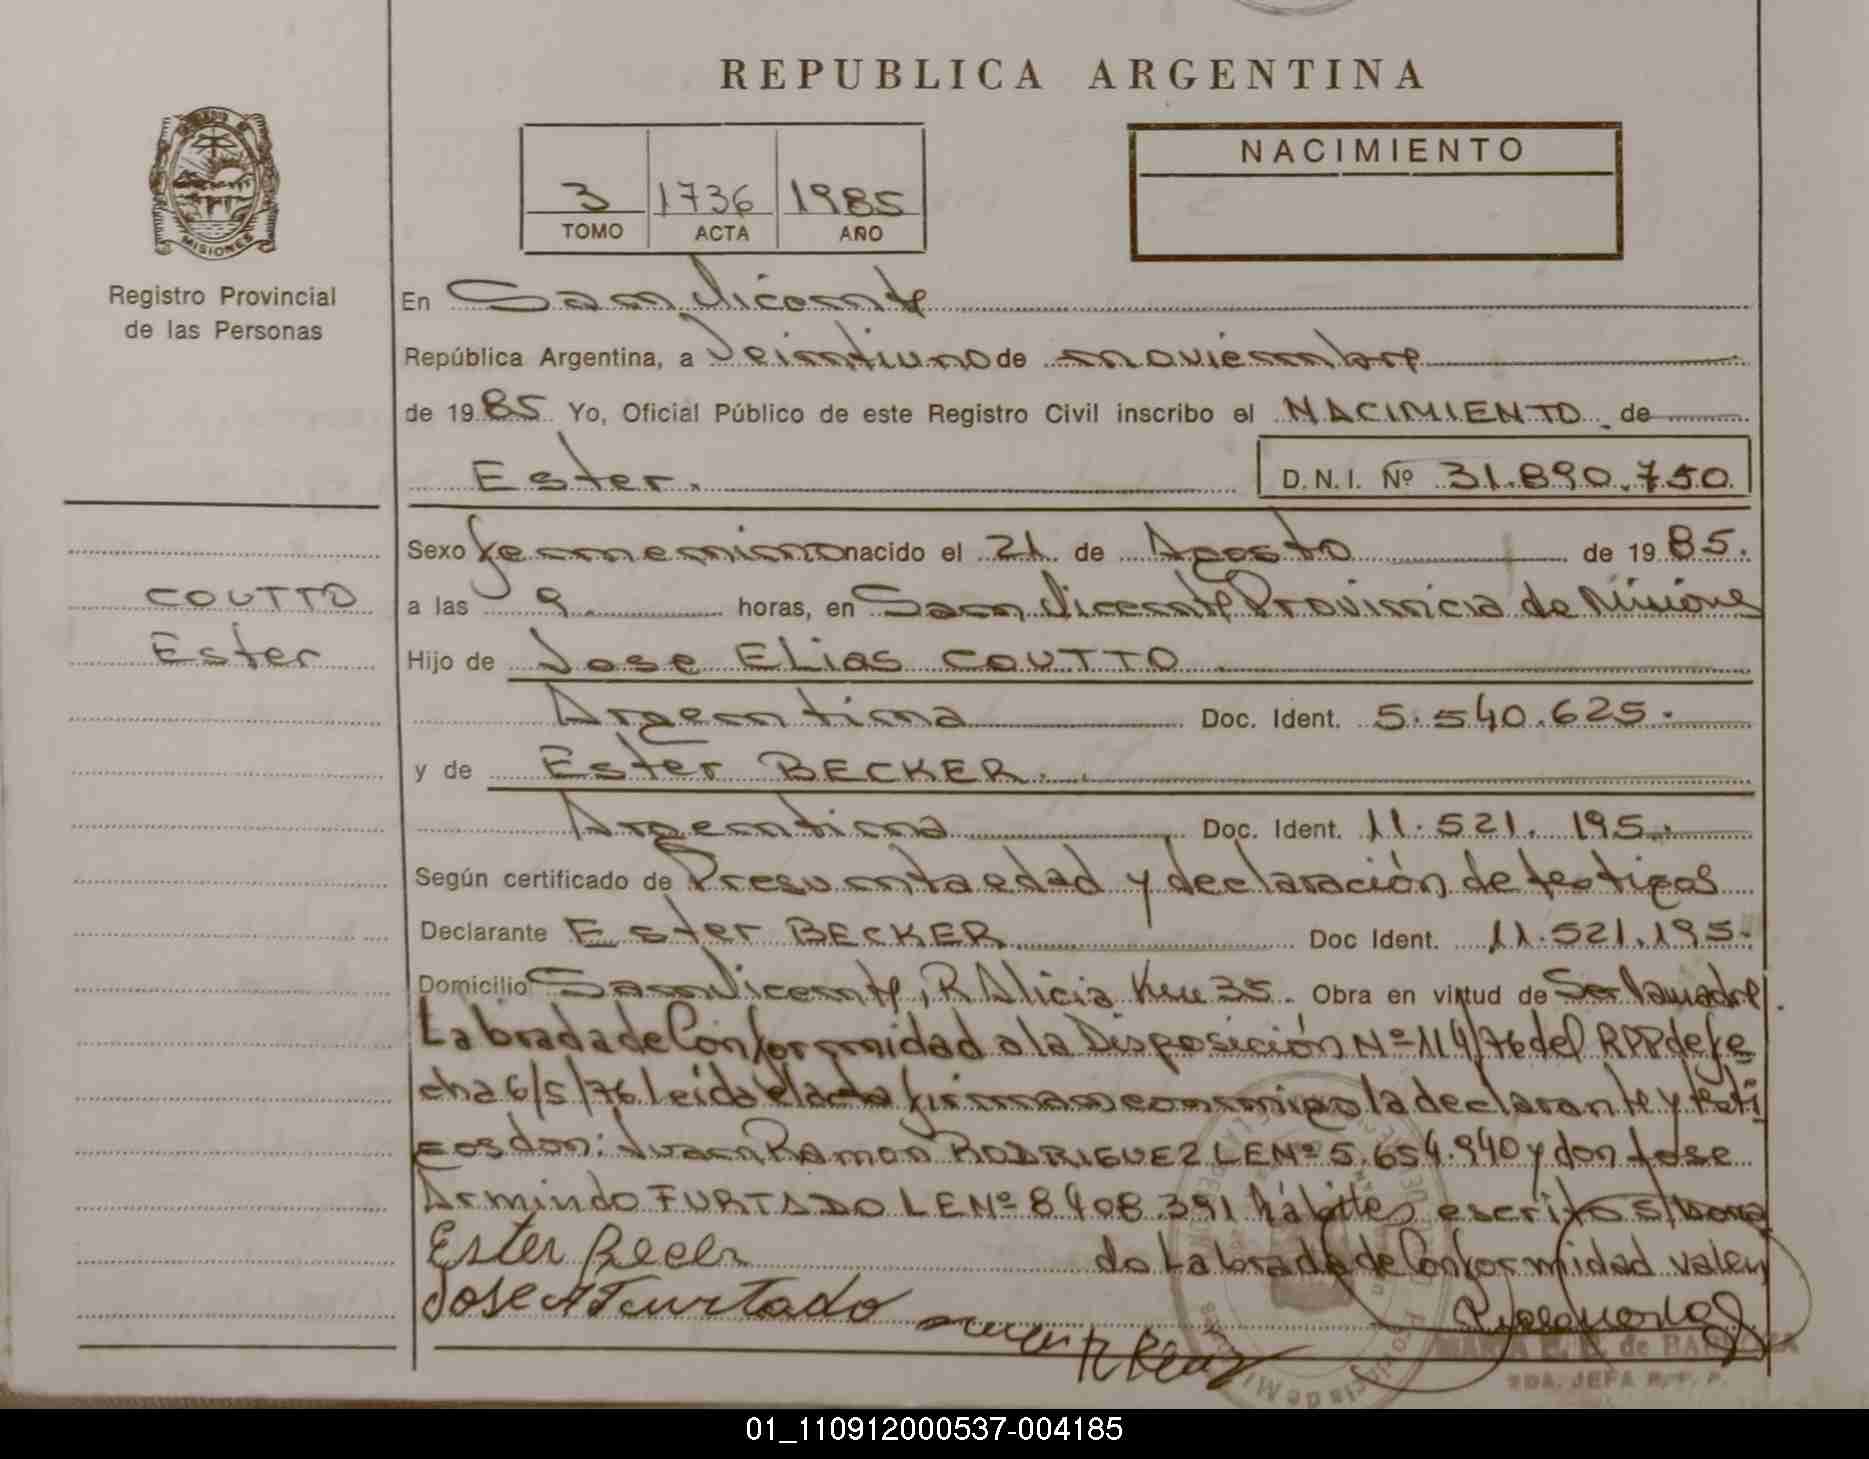 REPUBLICA ARGENTINA
MISIONES
Registro Provincial
de las Personas
3 1736 1985
TOMO ACTA AÑO
NACIMIENTO
En San Vicente
República Argentina, a Veintiuno de noviembre
de 1985 Yo, Oficial Público de este Registro Civil inscribo el NACIMIENTO de
Ester. D.N.I. Nº 31.890.750
COUTTO
Ester
Sexo femenino nacido el 21 de Agosto de 1985.
a las 9. horas, en San Vicente Provinicia de Misiones
Hijo de Jose ELias COUTTO
Argentina Doc. Ident. 5.540.625.
y de Ester BECKER.
Argentina Doc. Ident. 11.521.195.
Según certificado de Presunta edad y declaración de testigos
Declarante Ester BECKER Doc Ident. 11.521.195.
Domicilio San Vicente, R Alicia Km 35. Obra en virtud de Ser la madre.
Labrada de Conformidad a la Disposición Nº 114/76 del RPP de fe
cha 6/5/76 leida el acta firman conmigo la declarante y testi
gos don: Juan Ramon RODRIGUEZ LE Nº 5.654.940 y don Jose
Armindo FURTADO LE Nº 8408.391 hábiles escrito s/borra
do Labrada de Conformidad valen
Ester
Jose A Furtado
de
2DA. JEFA R.P.P.
01_110912000537-004185